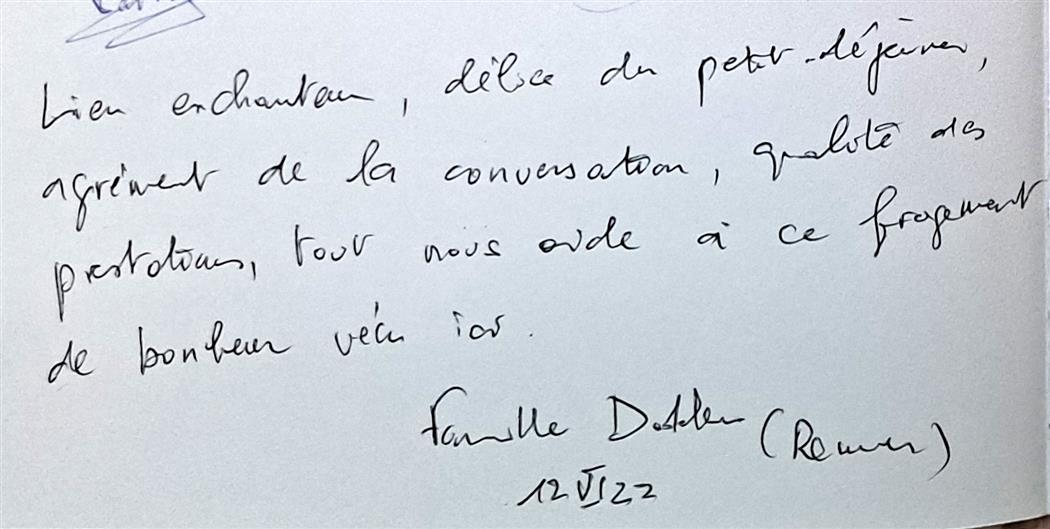 Lieu enchanteur, délice du petit-déjeuner,
agrément de la conversation, qualité des
prestations, tout nous aide à ce fragement
de bonheur vécu ici.
Famille (Rennes)
12 VI 22